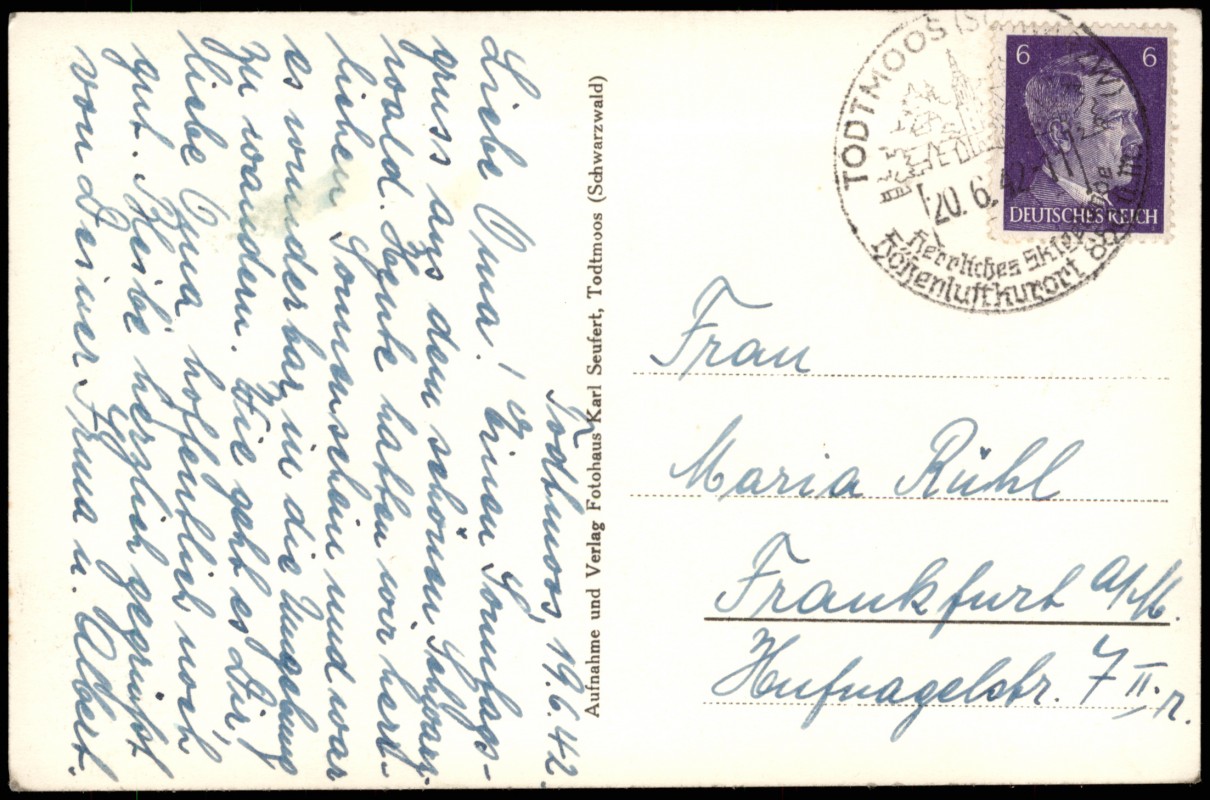 Todtmoos, 19.6.42.
Liebe Oma! Einen Sonntags-
gruss aus dem schönen Schwarz-
wald. Heute hatten wir herr-
lichen Sonnenschein und war
es wunderbar in die Umgebung
zu wandern. Wie geht es Dir,
liebe Oma, hoffentlich noch
gut. Sei herzlich gegrüsst
von Deiner u. Albert.
Aufnahme und Verlag Fotohaus Karl Seufert, Todtmoos (Schwarzwald)
TODTMOOS (SCHWARZW)
20.6.42
Herrliches Skigelände
Höhenluftkurort
6 6
DEUTSCHES REICH
Frau
Maria Rühl
Frankfurt a/M.
Hufnagelstr. 7 II. r.